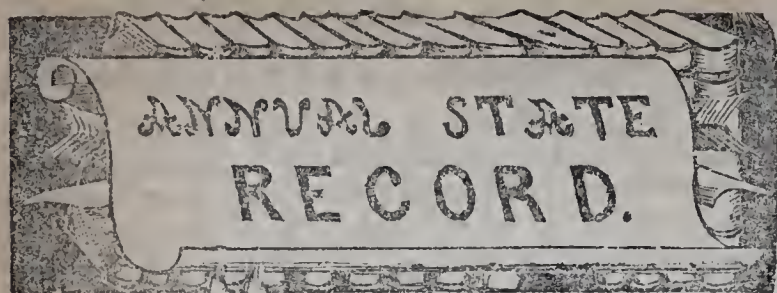 ANNUAL STATE
RECORD.